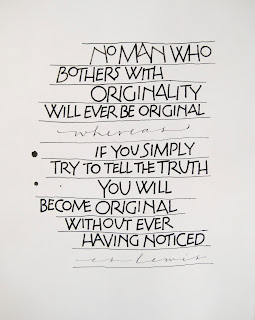 NO MAN WHO
BOTHERS WITH
ORIGINALITY
WILL EVER BE ORIGINAL
whereas
IF YOU SIMPLY
TRY TO TELL THE TRUTH
YOU WILL
BECOME ORIGINAL
WITHOUT EVER
HAVING NOTICED
cs lewis